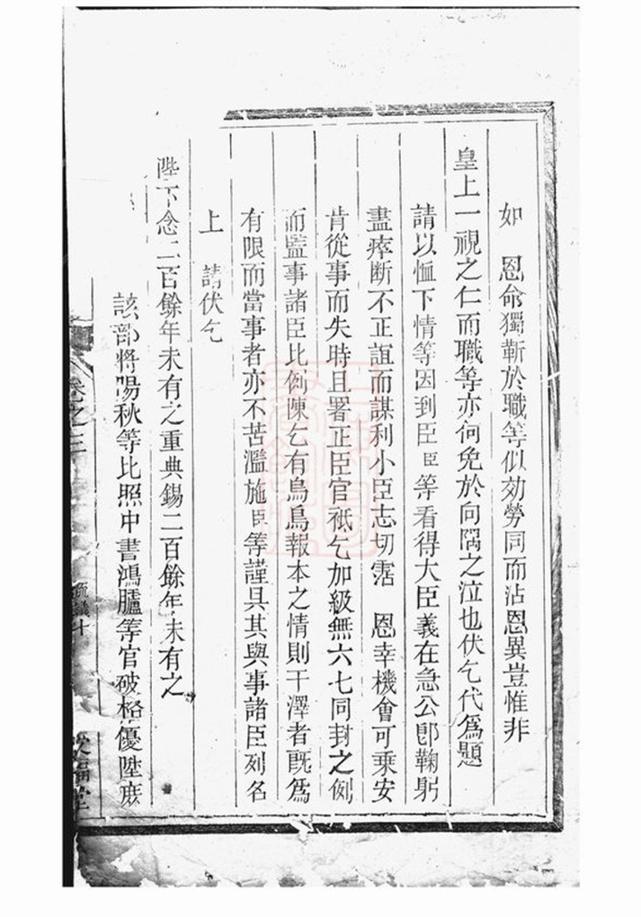 如　恩命獨靳於職等似効勞同而沾恩異豈惟非
皇上一視之仁而職等亦何免於向隅之泣也伏乞代爲題
請以恤下情等因到臣臣等看得大臣義在急公卽鞠躬
盡瘁斷不正誼而謀利小臣志切霑　恩幸機會可乘安
肯從事而失時且署正臣官祇乞加級無六七同封之例
而監事諸臣比例陳乞有烏鳥報本之情則干澤者既爲
有限而當事者亦不苦濫施臣等謹具其與事諸臣列名
上　請伏乞
陛下念二百餘年未有之重典錫二百餘年未有之
該部將陽秋等比照中書鴻臚等官破格優陞庶
卷之三
疏議十